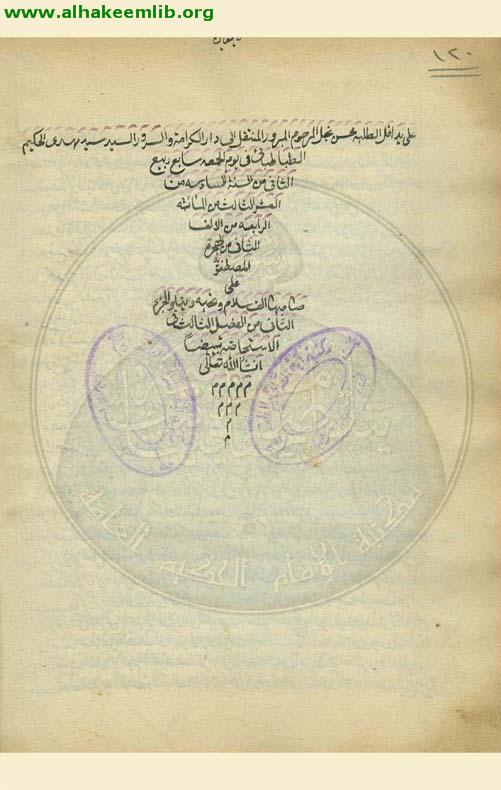 www.alhakeemlib.org
١٢٠
على يد اقل الطلبة محسن نجل المرحوم المبرور المنتقل الى دار الكرامة والسرور السيد سيد مهدي الحكيم
الطباطبائي في يوم الجمعة سابع ربيع
الثاني من السنة السادسة من
العشر الثالث من المائة
الرابعة من الالف
الثاني من الهجرة
المصطفوية
على
صاحبها السلام وعليه ويتلوه الجزء
الثاني من الفصل الثالث في
الاستحاضة
ان شاء الله تعالى
م م م م م
م م م
م
م
مكتبة الإمام الحكيم العامة